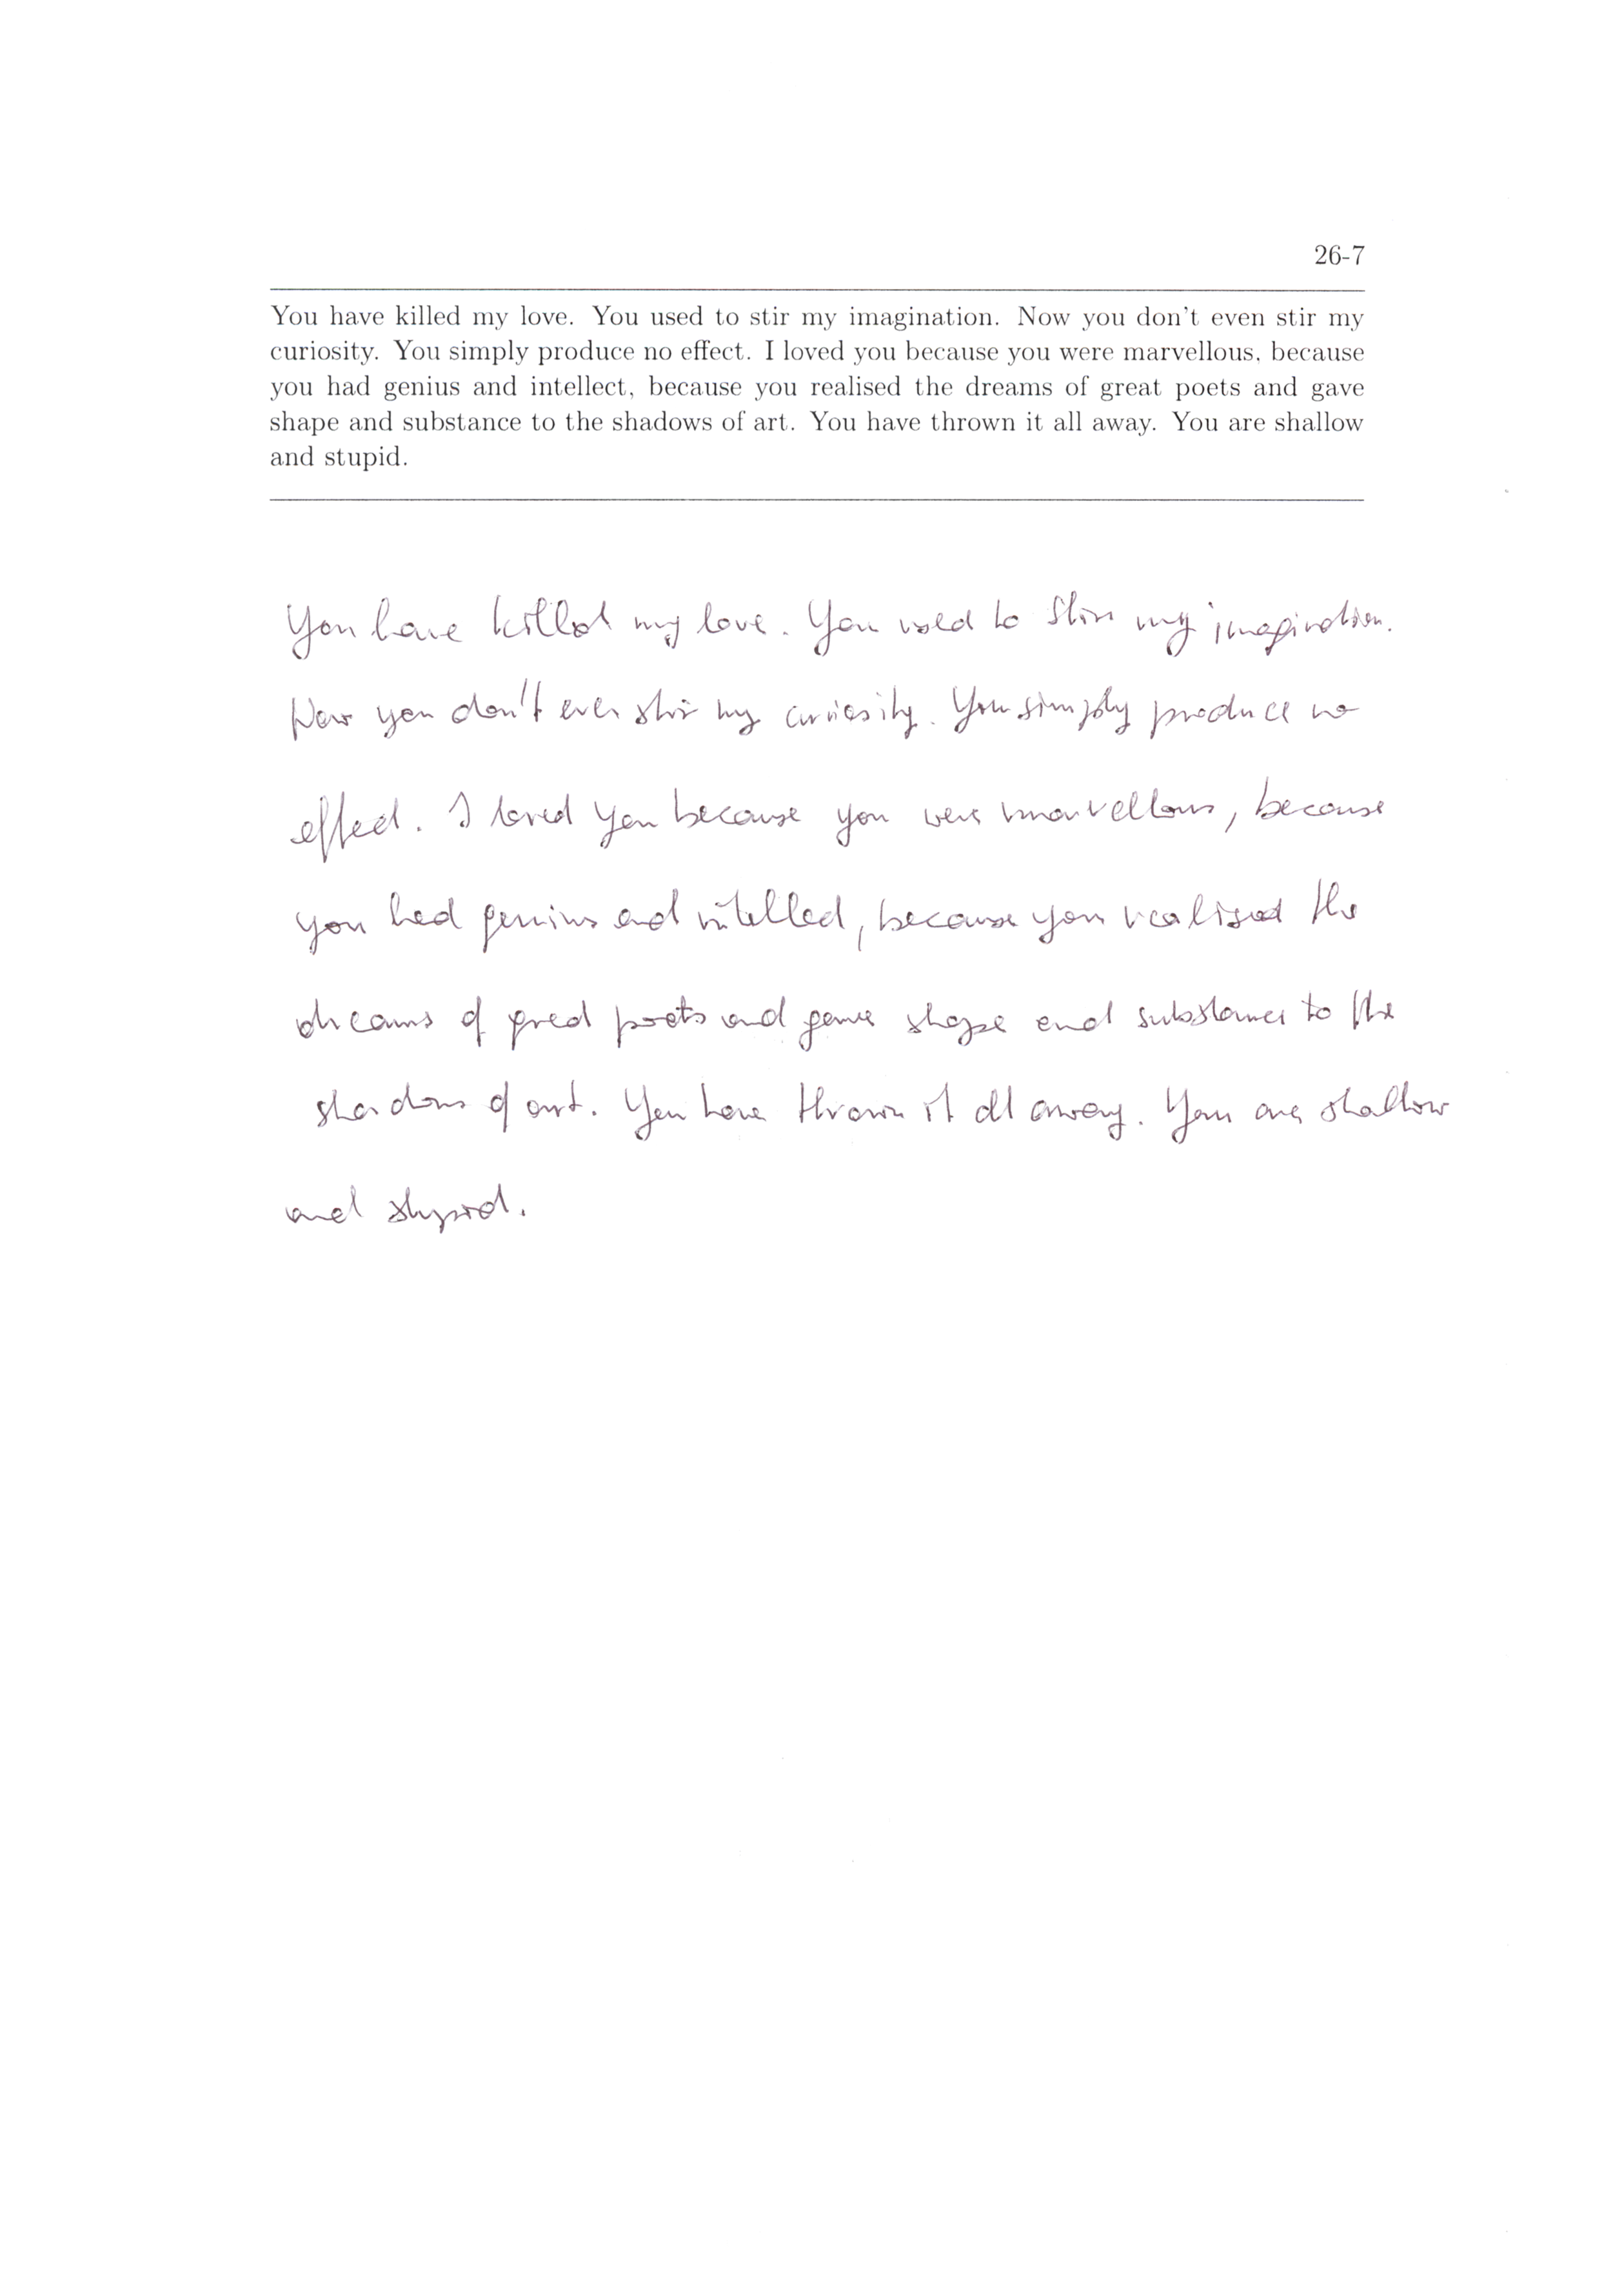 26-7
You have killed my love. You used to stir my imagination. Now you don't even stir my
curiosity. You simply produce no effect. I loved you because you were marvellous, because
you had genius and intellect, because you realised the dreams of great poets and gave
shape and substance to the shadows of art. You have thrown it all away. You are shallow
and stupid.
You have killed my love. You used to stir my imagination.
Now you don't even stir my curiosity. You simply produce no
effect. I loved you because you were marvellous, because
you had genius and intellect, because you realised the
dreams of great poets and gave shape and substance to the
shadows of art. You have thrown it all away. You are shallow
and stupid.